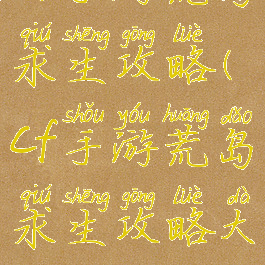 qiú shēng gōng lüè
求生攻略(
shǒu yóu huāng dǎo
cf手游荒岛
qiú shēng gōng lüè dà
求生攻略大